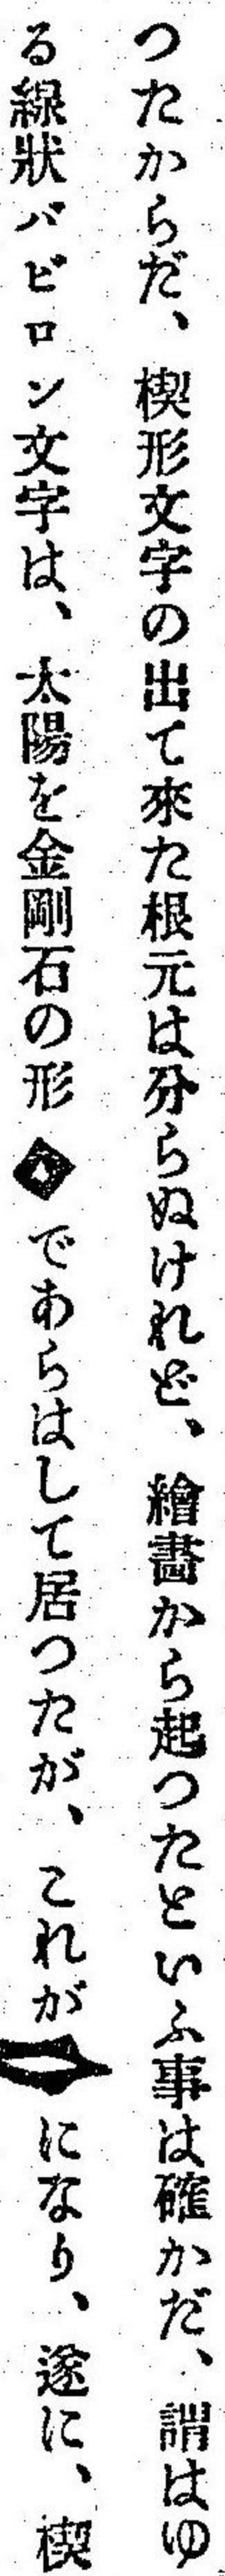 つたからだ、楔形文字の出て來た根元は分らぬけれど、繪畫から起つたといふ事は確かだ、謂はゆ
る線狀バビロン文字は、太陽を金剛石の形◆であらはして居つたが、これがになり、遂に、楔